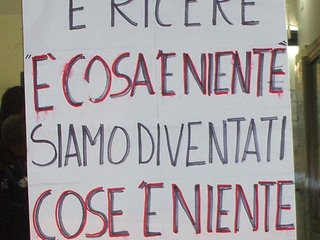 E RICERE
"E' COSA E NIENTE"
SIAMO DIVENTATI
COSE 'E NIENTE